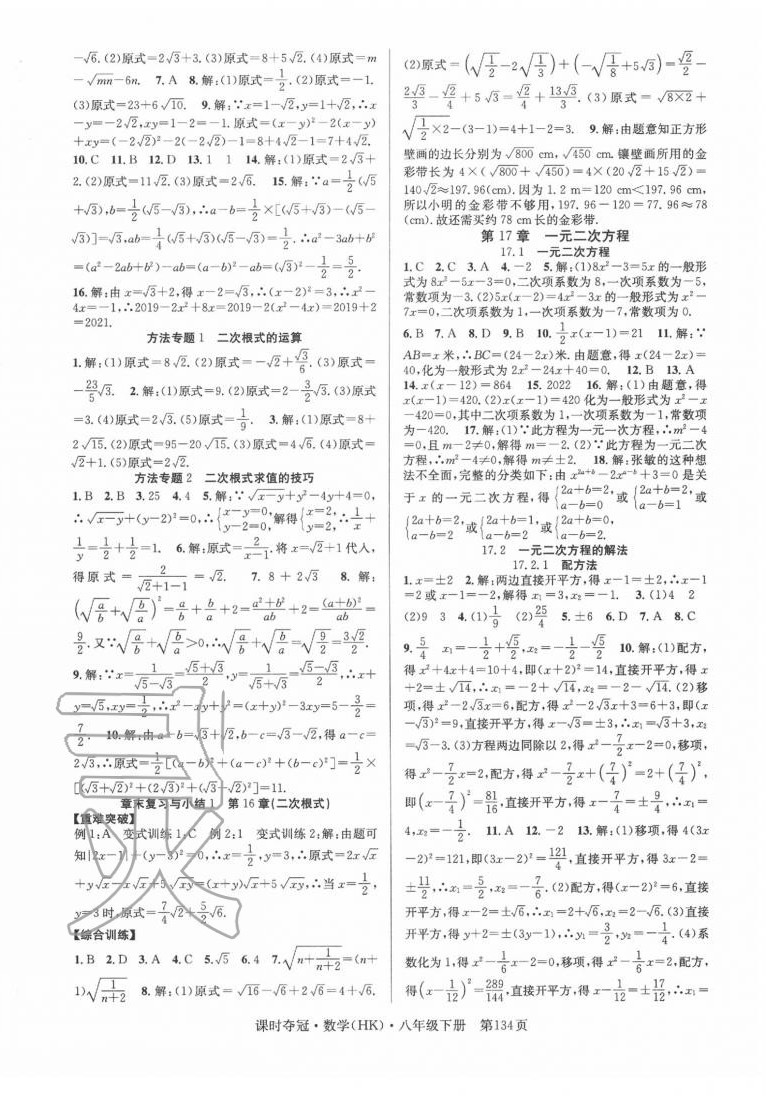 -√6.(2)原式=2√3+3.(3)原式=8+5√2.(4)原式=m
-√mn-6n. 7.A 8.解:(1)原式=1/2.(2)原式=-1.
(3)原式=23+6√10. 9.解:∵x=1-√2,y=1+√2,∴x
-y=-2√2,xy=1-2=-1.原式=(x-y)²-2(x-y)
+xy=(-2√2)²-2(-2√2)-1=8+4√2-1=7+4√2.
10.C 11.B 12.D 13.1 1 14.解:(1)原式=2√3+
2.(2)原式=11√2.(3)原式=2√6. 15.解:∵a=1/2(√5
+√3),b=1/2(√5-√3),∴a-b=1/2×[(√5+√3)-(√5-
√3)]=√3,ab=1/4(√5+√3)(√5-√3)=1/2,∴a²-3ab+b²
=(a²-2ab+b²)-ab=(a-b)²-ab=(√3)²-1/2=5/2.
16.解:由x=√3+2,得x-2=√3,∴(x-2)²=3,∴x²-
4x=-1,∴2019-2x²+8x=2019-2(x²-4x)=2019+2
=2021.
方法专题1 二次根式的运算
1.解:(1)原式=8√2.(2)原式=-√2+√3/6.(3)原式=
-23/5√3. 2.解:(1)原式=9.(2)原式=2-3/2√3.(3)原式
=3.(4)原式=2√3.(5)原式=1/9. 3.解:(1)原式=8+
2√15.(2)原式=95-20√15.(3)原式=4√6.(4)原式=
√2+1.(5)原式=2√2.
方法专题2 二次根式求值的技巧
1.B 2.B 3.25 4.4 5.解:∵√x-y+y²-4y+4=0,
∴√x-y+(y-2)²=0,∴{x-y=0,y-2=0,解得{x=2,y=2,∴1/x+
1/y=1/2+1/2=1. 6.解:原式=2/(x-1).将x=√2+1代入,
得原式=2/(√2+1-1)=√2. 7.8+2√3 8.解:
(√a/b+√b/a)²=a/b+b/a+2=(a²+b²)/ab+2=(a+b)²/ab=
9/2.又∵√a/b+√b/a>0,∴√a/b+√b/a=√9/2=3√2/2.
9.解:∵x=1/(√5-√3)=(√5+√3)/2,y=1/(√5+√3)=(√5-√3)/2,∴x+
y=√5,xy=1/2,∴x²-xy+y²=(x+y)²-3xy=5-3/2=
7/2. 10.解:由a-b=√3+√2,b-c=√3-√2,得a-c=
2√3,∴原式=1/2[(a-b)²+(a-c)²+(b-c)²]=1/2×
[(√3+√2)²+(2√3)²+(√3-√2)²]=11.
章末复习与小结1 第16章(二次根式)
【重难突破】
例1:A 变式训练1:C 例2:1 变式训练2:解:由题可
知|2x-1|+(y-3)²=0,∴x=1/2,y=3,∴原式=2x√x
+y√x-x√x+5√xy=(x+y)√x+5√xy,∴当x=1/2,
y=3时,原式=7/4√2+5/2√6.
【综合训练】
1.B 2.D 3.A 4.C 5.√5 6.4 7.√(n+1/(n+2))=(n+
1)√1/(n+2) 8.解:(1)原式=√16-√6+2√6=4+√6.
(2)原式=(√1/2-2√1/3)+(-√1/8+5√3)=√2/2-
2√3/3-√2/4+5√3=√2/4+13√3/3.(3)原式=√8×2+
√1/2×2-(3-1)=4+1-2=3. 9.解:由题意知正方形
壁画的边长分别为√800 cm,√450 cm.镶壁画所用的金
彩带长为4×(√800+√450)=4×(20√2+15√2)=
140√2≈197.96(cm).因为1.2 m=120 cm<197.96 cm,
所以小明的金彩带不够用.197.96-120=77.96≈78
(cm).故还需买约78 cm长的金彩带.
第17章 一元二次方程
17.1 一元二次方程
1.C 2.C 3.A 4.-2 5.解:(1)8x²-3=5x的一般形
式为8x²-5x-3=0,二次项系数为8,一次项系数为-5,
常数项为-3.(2)5x(x-2)=4x²-3x的一般形式为x²-
7x=0,二次项系数为1,一次项系数为-7,常数项为0.
6.B 7.A 8.D 9.B 10.1/2x(x-1)=21 11.解:∵
AB=x米,∴BC=(24-2x)米.由题意,得x(24-2x)=
40,化为一般形式为2x²-24x+40=0. 12.B 13.A
14.x(x-12)=864 15.2022 16.解:(1)由题意,得
x(x-1)=420.(2)x(x-1)=420化为一般形式为x²-x
-420=0,其中二次项系数为1,一次项系数为-1,常数项
为-420. 17.解:(1)∵此方程为一元一次方程,∴m²-4
=0,且m-2≠0,解得m=-2.(2)∵此方程为一元二次
方程,∴m²-4≠0,解得m≠±2. 18.解:张敏的这种想
法不全面,完整的分类如下:由x^(2a+b)-2x^(a-b)+3=0是关
于x的一元二次方程,得{2a+b=2,a-b=0或{2a+b=0,a-b=2或
{2a+b=2,a-b=2或{2a+b=1,a-b=2或{2a+b=2,a-b=1.
17.2 一元二次方程的解法
17.2.1 配方法
1.x=±2 2.解:两边直接开平方,得x-1=±2,∴x-1
=2或x-1=-2,解得x₁=3,x₂=-1. 3.(1)4 2
(2)9 3 4.(1)1/9 (2)25/4 5.±6 6.D 7.A 8.C
9.5/4 x₁=-1/2+√5/2,x₂=-1/2-√5/2 10.解:(1)配方,
得x²+4x+4=10+4,即(x+2)²=14,直接开平方,得x
+2=±√14,∴x₁=-2+√14,x₂=-2-√14.(2)移
项,得x²-2√3x=6,配方,得x²-2√3x+3=6+3,即(x
-√3)²=9,直接开平方,得x-√3=±3,∴x₁=√3+3,x₂
=√3-3.(3)方程两边同除以2,得x²-7/2x-2=0,移项,
得x²-7/2x=2,配方,得x²-7/2x+(7/4)²=2+(7/4)²,
即(x-7/4)²=81/16,直接开平方,得x-7/4=±9/4,∴x₁=
4,x₂=-1/2. 11.A 12.-2 13.解:(1)移项,得4(3x
-2)²=121,即(3x-2)²=121/4,直接开平方,得3x-2=
±11/2,∴x₁=5/2,x₂=-7/6.(2)配方,得(x-2)²=6,直接
开平方,得x-2=±√6,∴x₁=2+√6,x₂=2-√6.(3)直接
开平方,得y+2=±(3y-1),∴y₁=3/2,y₂=-1/4.(4)系
数化为1,得x²-1/6x-2=0,移项,得x²-1/6x=2,配方,
得(x-1/12)²=289/144,直接开平方,得x-1/12=±17/12,∴
课时夺冠·数学(HK)·八年级下册 第134页